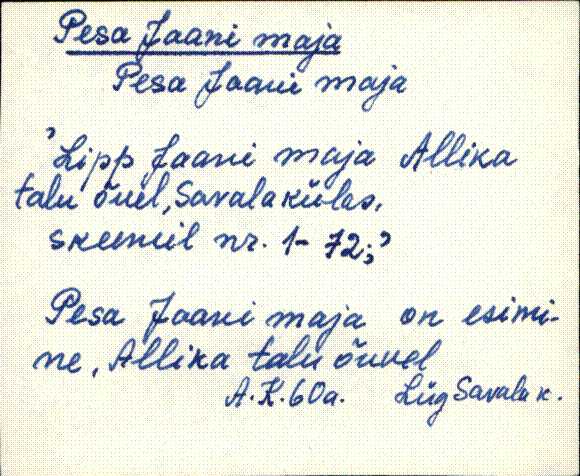 Pesa Jaani maja
Pesa Jaani maja
'Lipp Jaani maja Allika
talu õuel, Savala külas,
skeemil nr. 1-72;'
Pesa Jaani maja on esimi-
ne, Allika talu õuvel
A.K. 60a. Lüg Savala k.